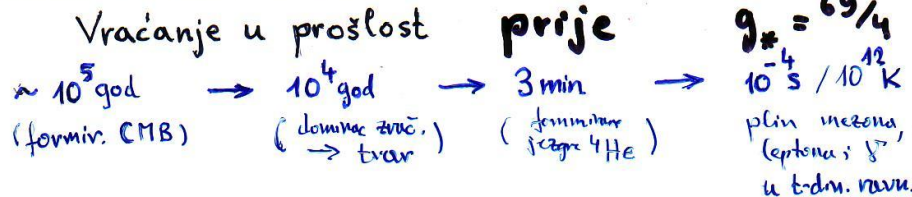 Vraćanje u prošlost prije g* = 69/4
~ 10⁵ god → 10⁴ god → 3 min → 10⁻⁴ s / 10¹² K
(formir. CMB) (dominac zrač. → tvar) (formiranje jezgre ⁴He) plin mezona,
leptona i γ
u t-din. ravn.